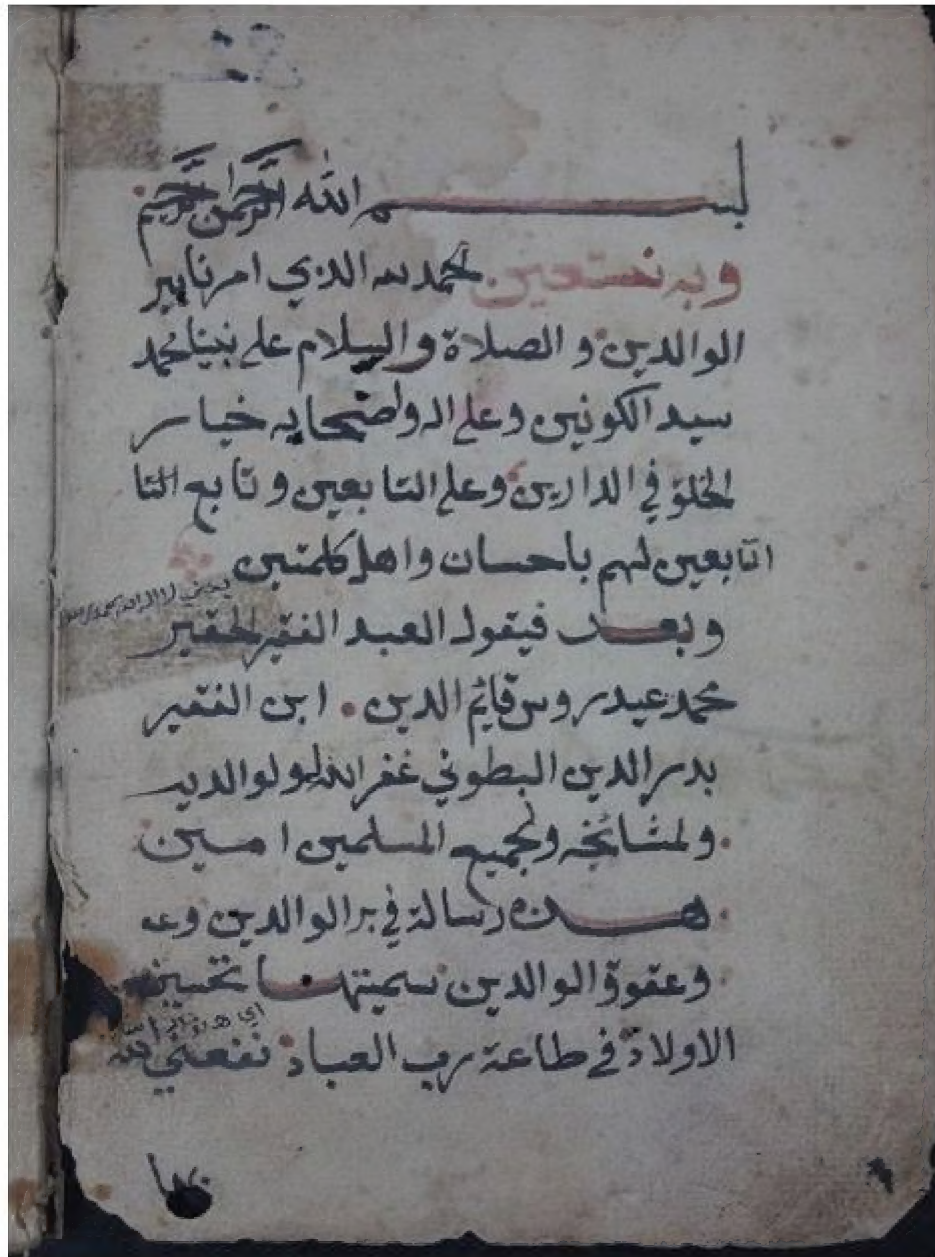 بسم الله الرحمن الرحيم
وبه نستعين الحمد لله الذي امرنا ببر
الوالدين والصلاة والسلام على نبينا محمد
سيد الكونين وعلى اله واصحابه خيار
الخلق في الدارين وعلى التابعين وتابع التا
اتابعين لهم باحسان واهل كلمتين
يعني لا اله الا الله محمد رسول
وبعد فيقول العبد الفقير الحقير
محمد عيدروس قايم الدين ابن الفقير
بدر الدين البطوني غفر الله له ولوالديه
ولمشائخه ولجميع المسلمين امين
هذه رسالة في بر الوالدين وعـ
وعقوق الوالدين سميتها تحسين
اي هذه
الاولاد في طاعة رب العباد نفعني الله
بها